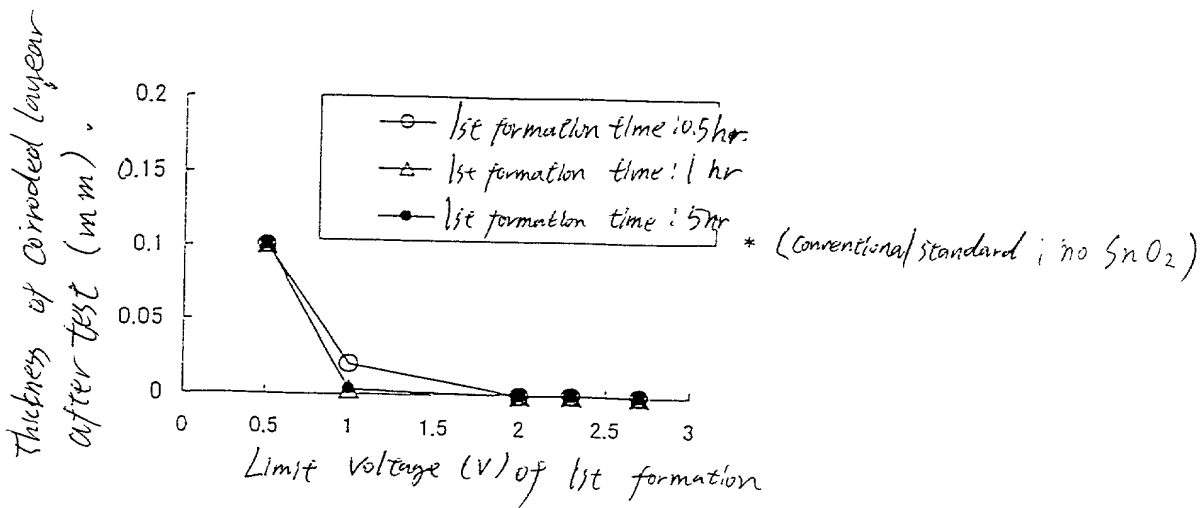 Thickness of Corroded layear
after test (mm).
0.2
0.15
0.1
0.05
0
1st formation time : 0.5hr.
1st formation time : 1 hr
1st formation time : 5hr
* (Conventional standard ; no SnO2)
0 0.5 1 1.5 2 2.5 3
Limit Voltage (V) of 1st formation